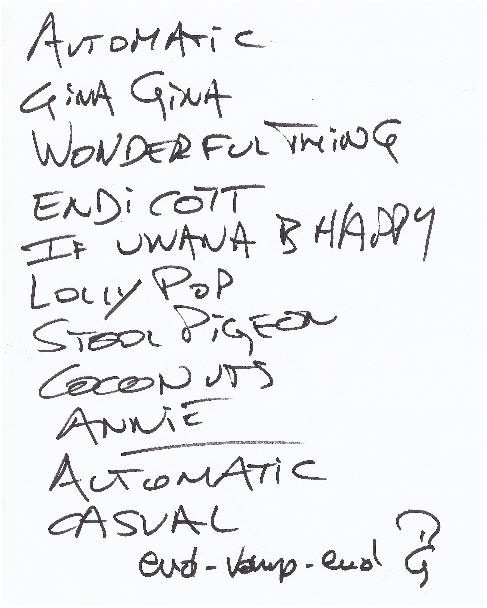 AUTOMATIC
GINA GINA
WONDERFUL THING
ENDICOTT
IF UWANA B HAPPY
LOLLY POP
STOOL PIGEON
COCONUTS
ANNIE
AUTOMATIC
CASUAL
end-vamp-end